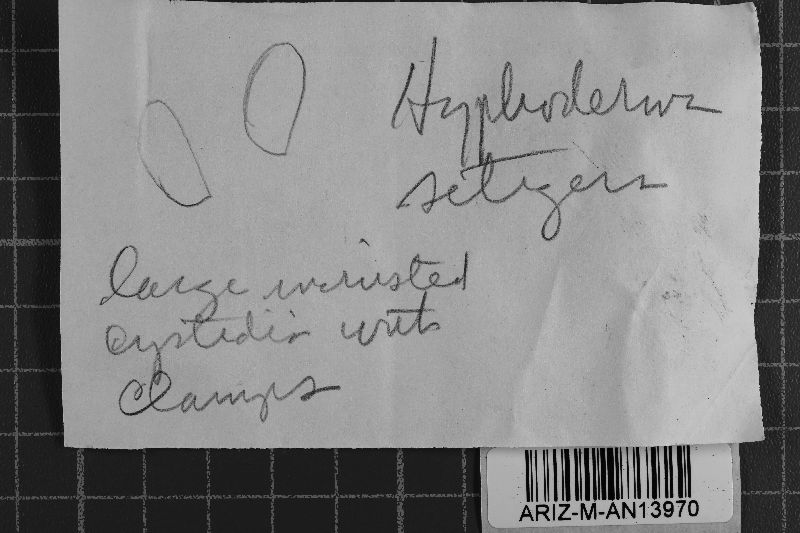 Hyphoderma
setigera
large incrusted
cystidia with
clamps
ARIZ-M-AN13970